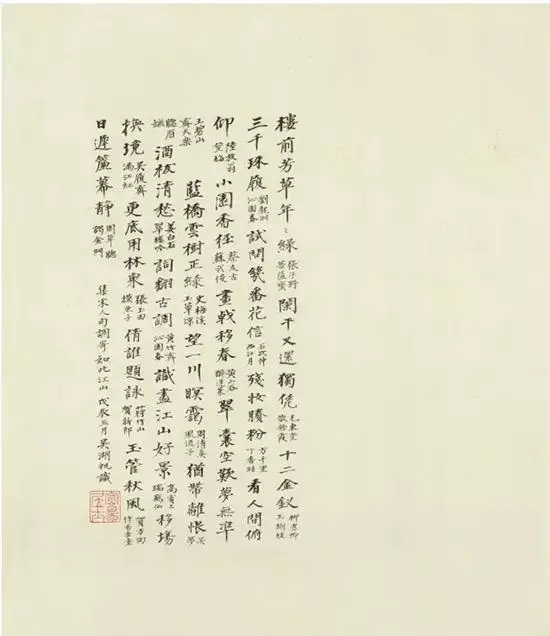 樓前芳草年〻綠 張子野菩薩蠻 闌干又還獨凭 毛東堂散餘霞 十二金釵 柳耆卿玉蝴蝶
三千珠履 劉龍洲沁園春 試問幾番花信 石次仲西江月 殘妝賸粉 方千里丁香結 看人間俯
仰 陸放翁望梅 小園香徑 蔡友古蘇武慢 畫戟移春 黃山谷醉蓬萊 翠囊空歎夢無準
王碧山齊天樂 藍橋雲樹正綠 史梅溪玉簟涼 望一川暝靄 周清真風流子 猶帶離恨 吳夢
窻眉嫵 酒袚清愁 姜白石翠樓吟 詞翻古調 黃竹齋沁園春 識盡江山好景 高賓王瑞鶴仙 移場
換境 吳履齋滿江紅 更底用林泉 張玉田摸魚子 倩誰題詠 蔣竹山賀新郎 玉管秋風 賀方回侍香金童
日遲簾幕靜 周草窻謁金門 集宋人句調寄如此江山 戊辰五月吳湖帆識